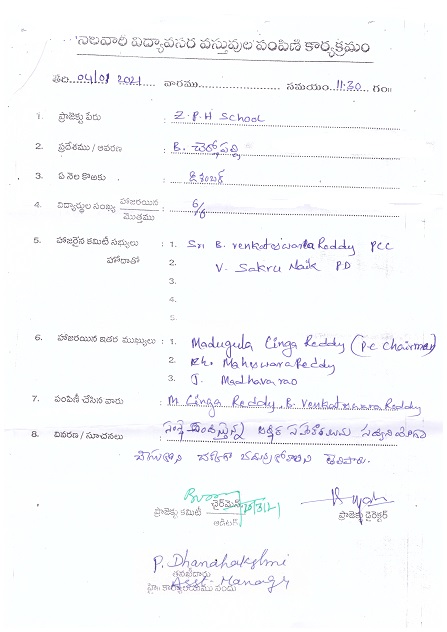 నెలవారి విద్యావసర వస్తువుల పంపిణి కార్యక్రమం
తేది 04/01 2021 వారము సమయం 11:30 గం॥
1. ప్రాజెక్టు పేరు : Z.P.H School
2. ప్రదేశము / ఆవరణ : B.
3. ఏ నెల కొఱకు : డిసెంబర్
4. విద్యార్థుల సంఖ్య హాజరయిన / మొత్తము : 6/6
5. హాజరైన కమిటీ సభ్యులు : 1. Sri B. Venkateswarla Reddy PCC
హోదాతో 2. V. Sakru Naik P.D
3.
4.
5.
6. హాజరయిన ఇతర ముఖ్యులు : 1. Madugula Linga Reddy (P.C Chairman)
2. Kh. Maheswara Reddy
3. J. Madhava rao
7. పంపిణీ చేసిన వారు : M Linga Reddy, B. Venkateswara Reddy
8. వివరణ / సూచనలు :
తెలిపారు.
చైర్మెన్
ప్రాజెక్టు కమిటీ ఆడిటర్ ప్రాజెక్టు డైరెక్టర్
P. Dhanalakshmi
Asst. Manager